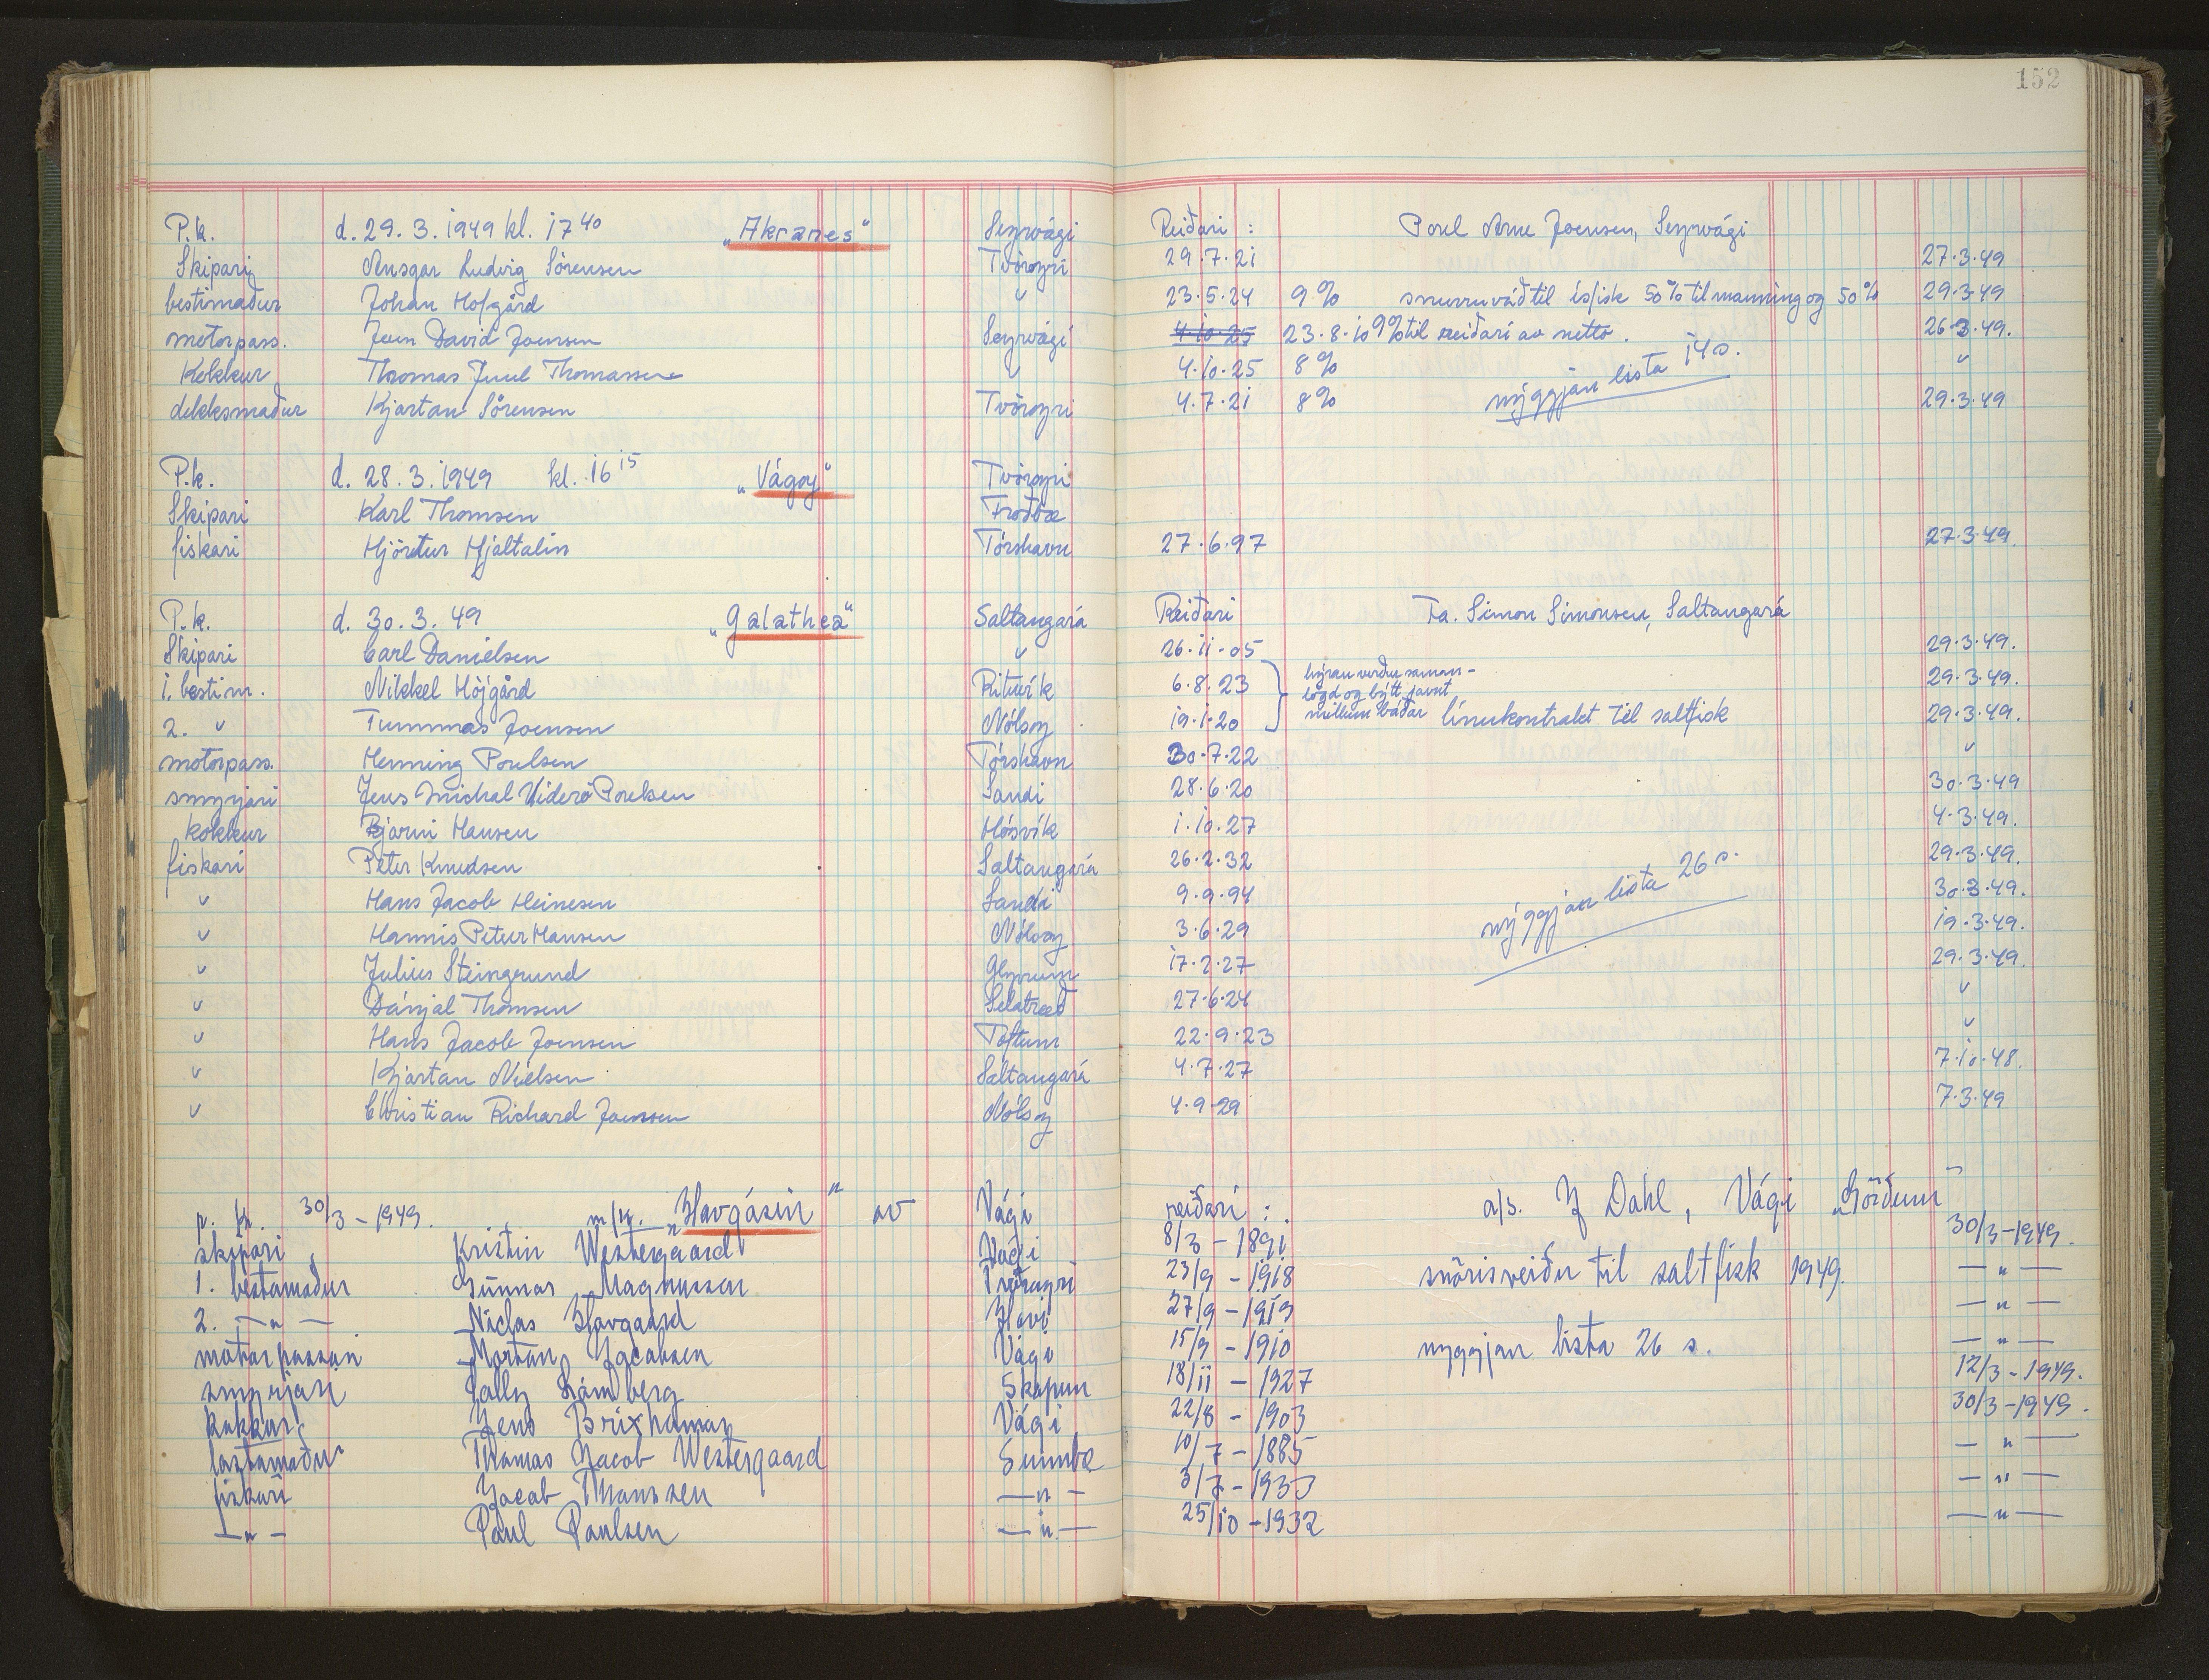 152
P.k. d. 29.3.1949 kl. 17 40 „Akranes“ Seyrvági Reiðari : Poul Arne Joensen, Seyrvági
Skipari Ansgar Ludvig Sörensen Tvöroyri 29.7.21 27.3.49
bestimaður Johan Hofgård " 23.5.24 9% snurruváð til ísfisk 50% til manning og 50% 29.3.49
motorpass. Jens David Joensen Seyrvági 4.10.25 23.8.10 9% til reiðari av netto. 26.3.49.
Kokkur Thomas Juul Thomassen " 4.10.25 8% "
dekksmaður Kjartan Sörensen Tvöroyri 4.7.21 8% nýggjan lista 14 s. 29.3.49
P.k. d. 28.3.1949 kl. 16 15 „Vágoy“ Tvöroyri
Skipari Karl Thomsen Froðbæ
fiskari Hjörtur Hjaltalin Tórshavn 27.6.97 27.3.49.
P.k. d. 30.3.49 „Galathea“ Saltangará Reiðari Fa. Simon Simonsen, Saltangará
Skipari Carl Danielsen " 26.11.05 29.3.49.
1. bestim. Nikkel Höjgård Rituvík 6.8.23 hýran verður saman- 29.3.49.
løgd og býtt javnt
2. " Tummas Joensen Nólsoy 19.1.20 millum báðar línukontrakt til saltfisk 29.3.49.
motorpass. Henning Poulsen Tórshavn 30.7.22 "
smyrjari Jens Michal Viderö Poulsen Sandi 28.6.20 30.3.49
kokkur Bjarni Hansen Hósvík 1.10.27 4.3.49.
fiskari Peter Knudsen Saltangará 26.2.32 29.3.49.
" Hans Jacob Heinesen Sandi 9.9.94 nýggjan lista 26 s. 30.3.49.
" Hannis Petur Hansen Nólsoy 3.6.29 19.3.49.
" Julius Steingrund Glyvrum 17.2.27 29.3.49.
" Dánjal Thomsen Selatrað 27.6.24 "
" Hans Jacob Joensen Toftum 22.9.23 "
" Kjartan Nielsen Saltangará 4.7.27 7.10.48.
" Christian Richard Joensen Nólsoy 4.9.29 7.3.49
p. k. 30/3 - 1949. m/k. „Havgásin“ av Vági reiðari : a/s. J Dahl, Vági
skipari Kristin Westergaard Vági 8/3 - 1891 30/3-1949.
1. bestamaður Gunnar Magnussen Tvöroyri 23/9 - 1918 snörisveiðu til saltfisk 1949. — " —
2. — " — Niclas Havgaard Hovi 27/9 - 1919 — " —
motorpassari Mortan Jacobsen Vági 15/9 - 1910 nyggjan lista 26 s. — " —
smyrjari Sámberg Skopun 18/11 - 1927 12/3-1949.
kokkur Jens Brixhamar Vági 22/8 - 1903 30/3-1949.
lastamaður Thomas Jacob Westergaard Sumba 10/7 - 1885 — " —
fiskari Jacob Thomsen — " — 3/7 - 1933 — " —
— " — Poul Poulsen — " — 25/10 - 1932 — " —